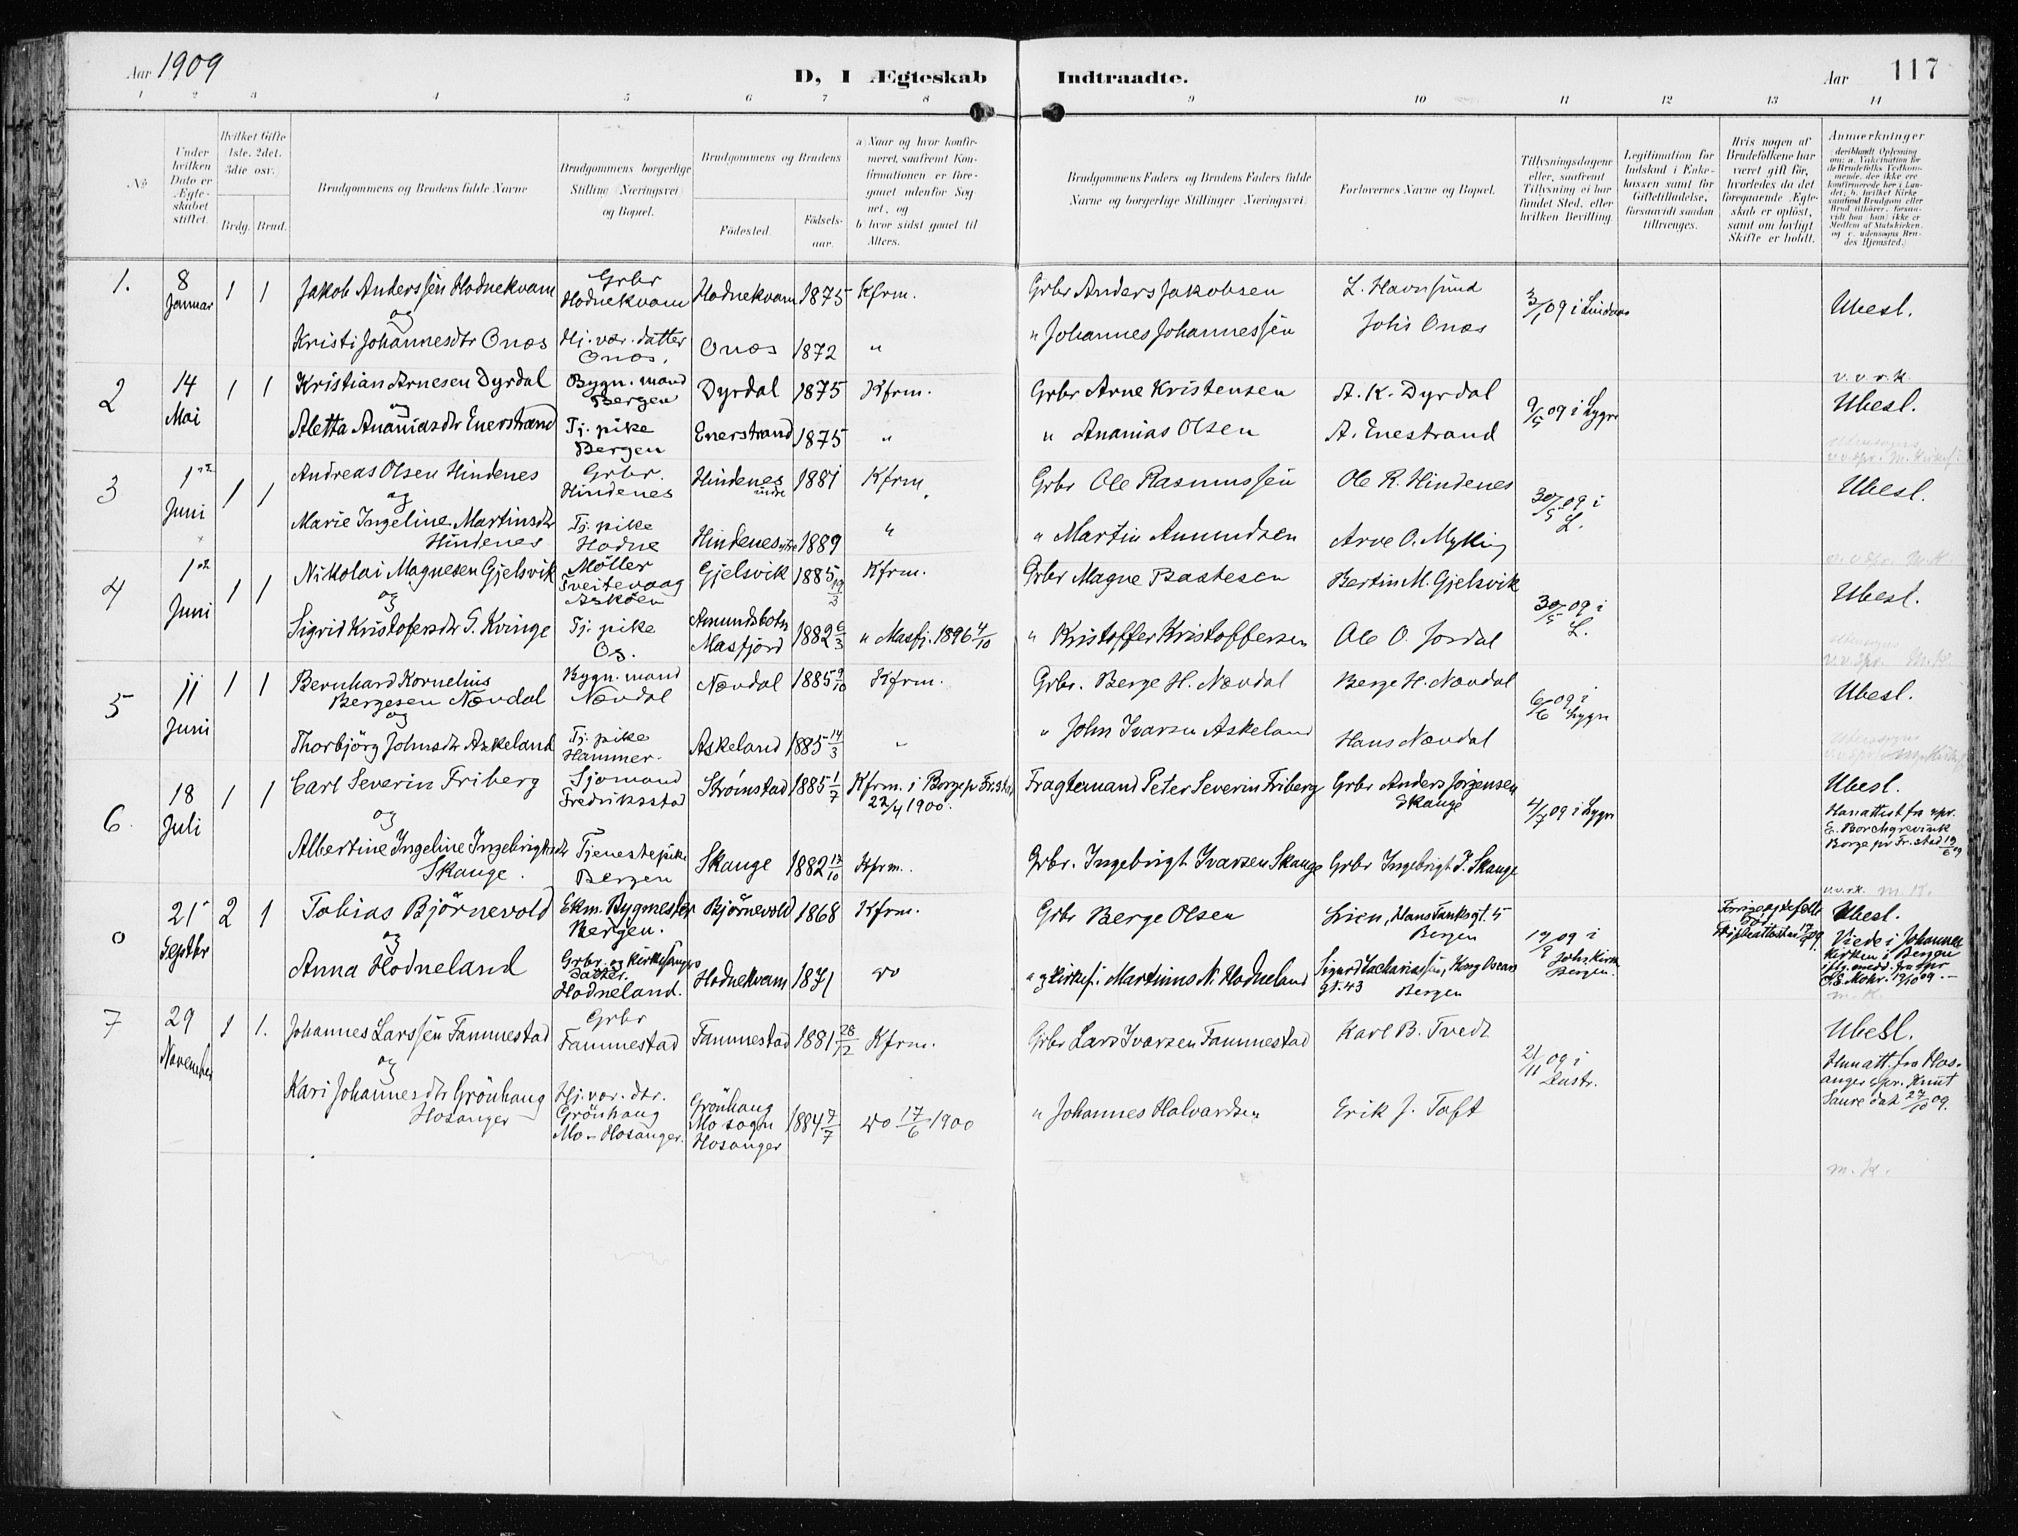 Aar 1909
D, I Ægteskab Indtraadte.
Aar 117
1 2 3 4 5 6 7 8 9 10 11 12 13 14
No
Under hvilken Dato er Ægteskabet stiftet.
Hvilket Gifte (1ste, 2det, 3die osv.
Brdg. Brud.
Brudgommens og Brudens fulde Navne
Brudgommens borgerlige Stilling (Næringsvei) og Bopæl.
Brudgommens og Brudens
Fødested.
Fødselsaar.
a) Naar og hvor konfirmeret, saafremt Konfirmationen er foregaaet udenfor Sognet, og
b) hvor sidst gaaet til Alters.
Brudgommens Faders og Brudens Faders fulde Navne og borgerlige Stillinger (Næringsvei).
Forlovernes Navne og Bopæl.
Tillysningsdagene eller, saafremt Tillysning ei har fundet Sted, efter hvilken Bevilling.
Legitimation for Indskud i Enkekassen samt for Giftetilladelse, forsaavidt saadan tiltrænges.
Hvis nogen af Brudefolkene har været gift før, hvorledes da det foregaaende Ægteskab er opløst, samt om lovligt Skifte er holdt.
Anmerkninger
1. 8 Januar 1 1
Jakob Anderssen Hodnekvam
og
Kristi Johannesdtr Onæs
Grbr Hodnekvam
Hj. vær. datter Onæs.
Hodnekvam 1875 Kfrm.
Onæs 1872 "
Grbr Anders Jakobsen
" Johannes Johannessen
L. Havnsund
Johs Onæs
3/1 09 i Lindaas
Ubesl.
v. v. s. k.
2 14 Mai 1 1
Kristian Arnesen Dyrdal
og
Aletta Ananiasdtr Enerstrand
Bygn. mand Bergen
Tj. pike Bergen
Dyrdal 1875 Kfrm.
Enerstrand 1875 "
Grbr Arne Kristensen
" Ananias Olsen
A. K. Dyrdal
A. Enestrand
9/5 09 i Lygre
Ubesl.
3 1ste Juni 1 1
Andreas Olsen Hindenes
og
Marie Ingeline Martinsdtr Hindenes
Grbr. Hindenes
Tj. pike Hodne
Hindenes indre 1881 Kfrm.
Hindenes ytre 1889 "
Grbr Ole Rasmussen
" Martin Amundsen
Ole R. Hindenes
Arve O. Myking
30/5 09 i L.
Ubesl.
4 1ste Juni 1 1
Nikolai Magnesen Gjelsvik
og
Sigrid Kristofersdtr S. Kvinge
Möller Tveitevaag Askøen
Tj. pike Os.
Gjelsvik 1885 19/3 Kfrm.
Amundsbotn Masfjord 1882 6/3 " Masfj. 1896 4/10
Grbr Magne Bastesen
" Kristoffer Kristoffersen
Bertin M. Gjelsvik
Ole O. Jordal
30/5 09 i L.
Ubesl.
5 11 Juni 1 1
Bernhard Kornelius Bergesen Nævdal
og
Thorbjörg Johnsdtr Askeland
Bygn. mand Nævdal
Tj. pike Hammer.
Nævdal 1885 9/10 Kfrm.
Askeland 1885 14/3 "
Grbr. Berge H. Nævdal
" John Ivarsen Askeland
Berge H. Nævdal
Hans Nævdal
6/6 09 i Lygre
Ubesl.
6. 18 Juli 1 1
Carl Severin Friberg
og
Albertine Ingeline Ingebrigtsdtr Skauge.
Sjømand Fredriksstad
Tjenestepike Bergen
Strømstad 1885 1/7 Kfrm. i Borge pr Fr.stad 22/4 1900.
Skauge 1882 12/10 Kfrm.
Fragtemand Peter Severin Friberg
Grbr. Ingebrigt Ivarsen Skauge
Grbr Anders Jørgensen Skauge
Grbr Ingebrigt I. Skauge
4/7 09 i Lygre
Ubesl.
Han attest fra spr. E. Borchgrevink Borge pr Fr.stad 19/6 09
v.v.s.k. m. K.
0 21 Septbr 2 1
Tobias Björnevold
og
Anna Hodneland
Ekm. Bygmester Bergen.
Grbr. og kirkesangers datter. Hodneland.
Björnevold 1868 Kfrm.
Hodnekvam 1871 do
Grbr Berge Olsen
" og kirkes. Martinus N. Hodneland
Lien, Hans Tanksgt. 5 Bergen
Sigurd Zachariassen, Kong Oscars gt. 43 Bergen
19/9 09 i Johs. kirke Bergen.
Ubesl.
Viede i Johannes Kirken i Bergen
7 29 November 1 1.
Johannes Larssen Fammestad
og
Kari Johannesdtr Grönhaug Hosanger
Grbr Fammestad
Hj. vær. dtr. Grönhaug Mo - Hosanger.
Fammestad 1881 28/12 Kfrm.
Grönhaug Mo sogn Hosanger 1884 7/7 do 17/6 1900
Grbr Lars Ivarsen Fammestad
" Johannes Halvardsen
Karl B. Tvedt
Erik J. Toft
21/11 09 i Lustr.
Ubesl.
Hun att. fra Hosanger spr. Knut Saure dat. 27/10 09.
m. K.